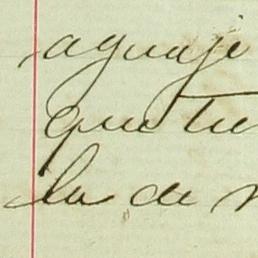 aguaje
que tie
la de